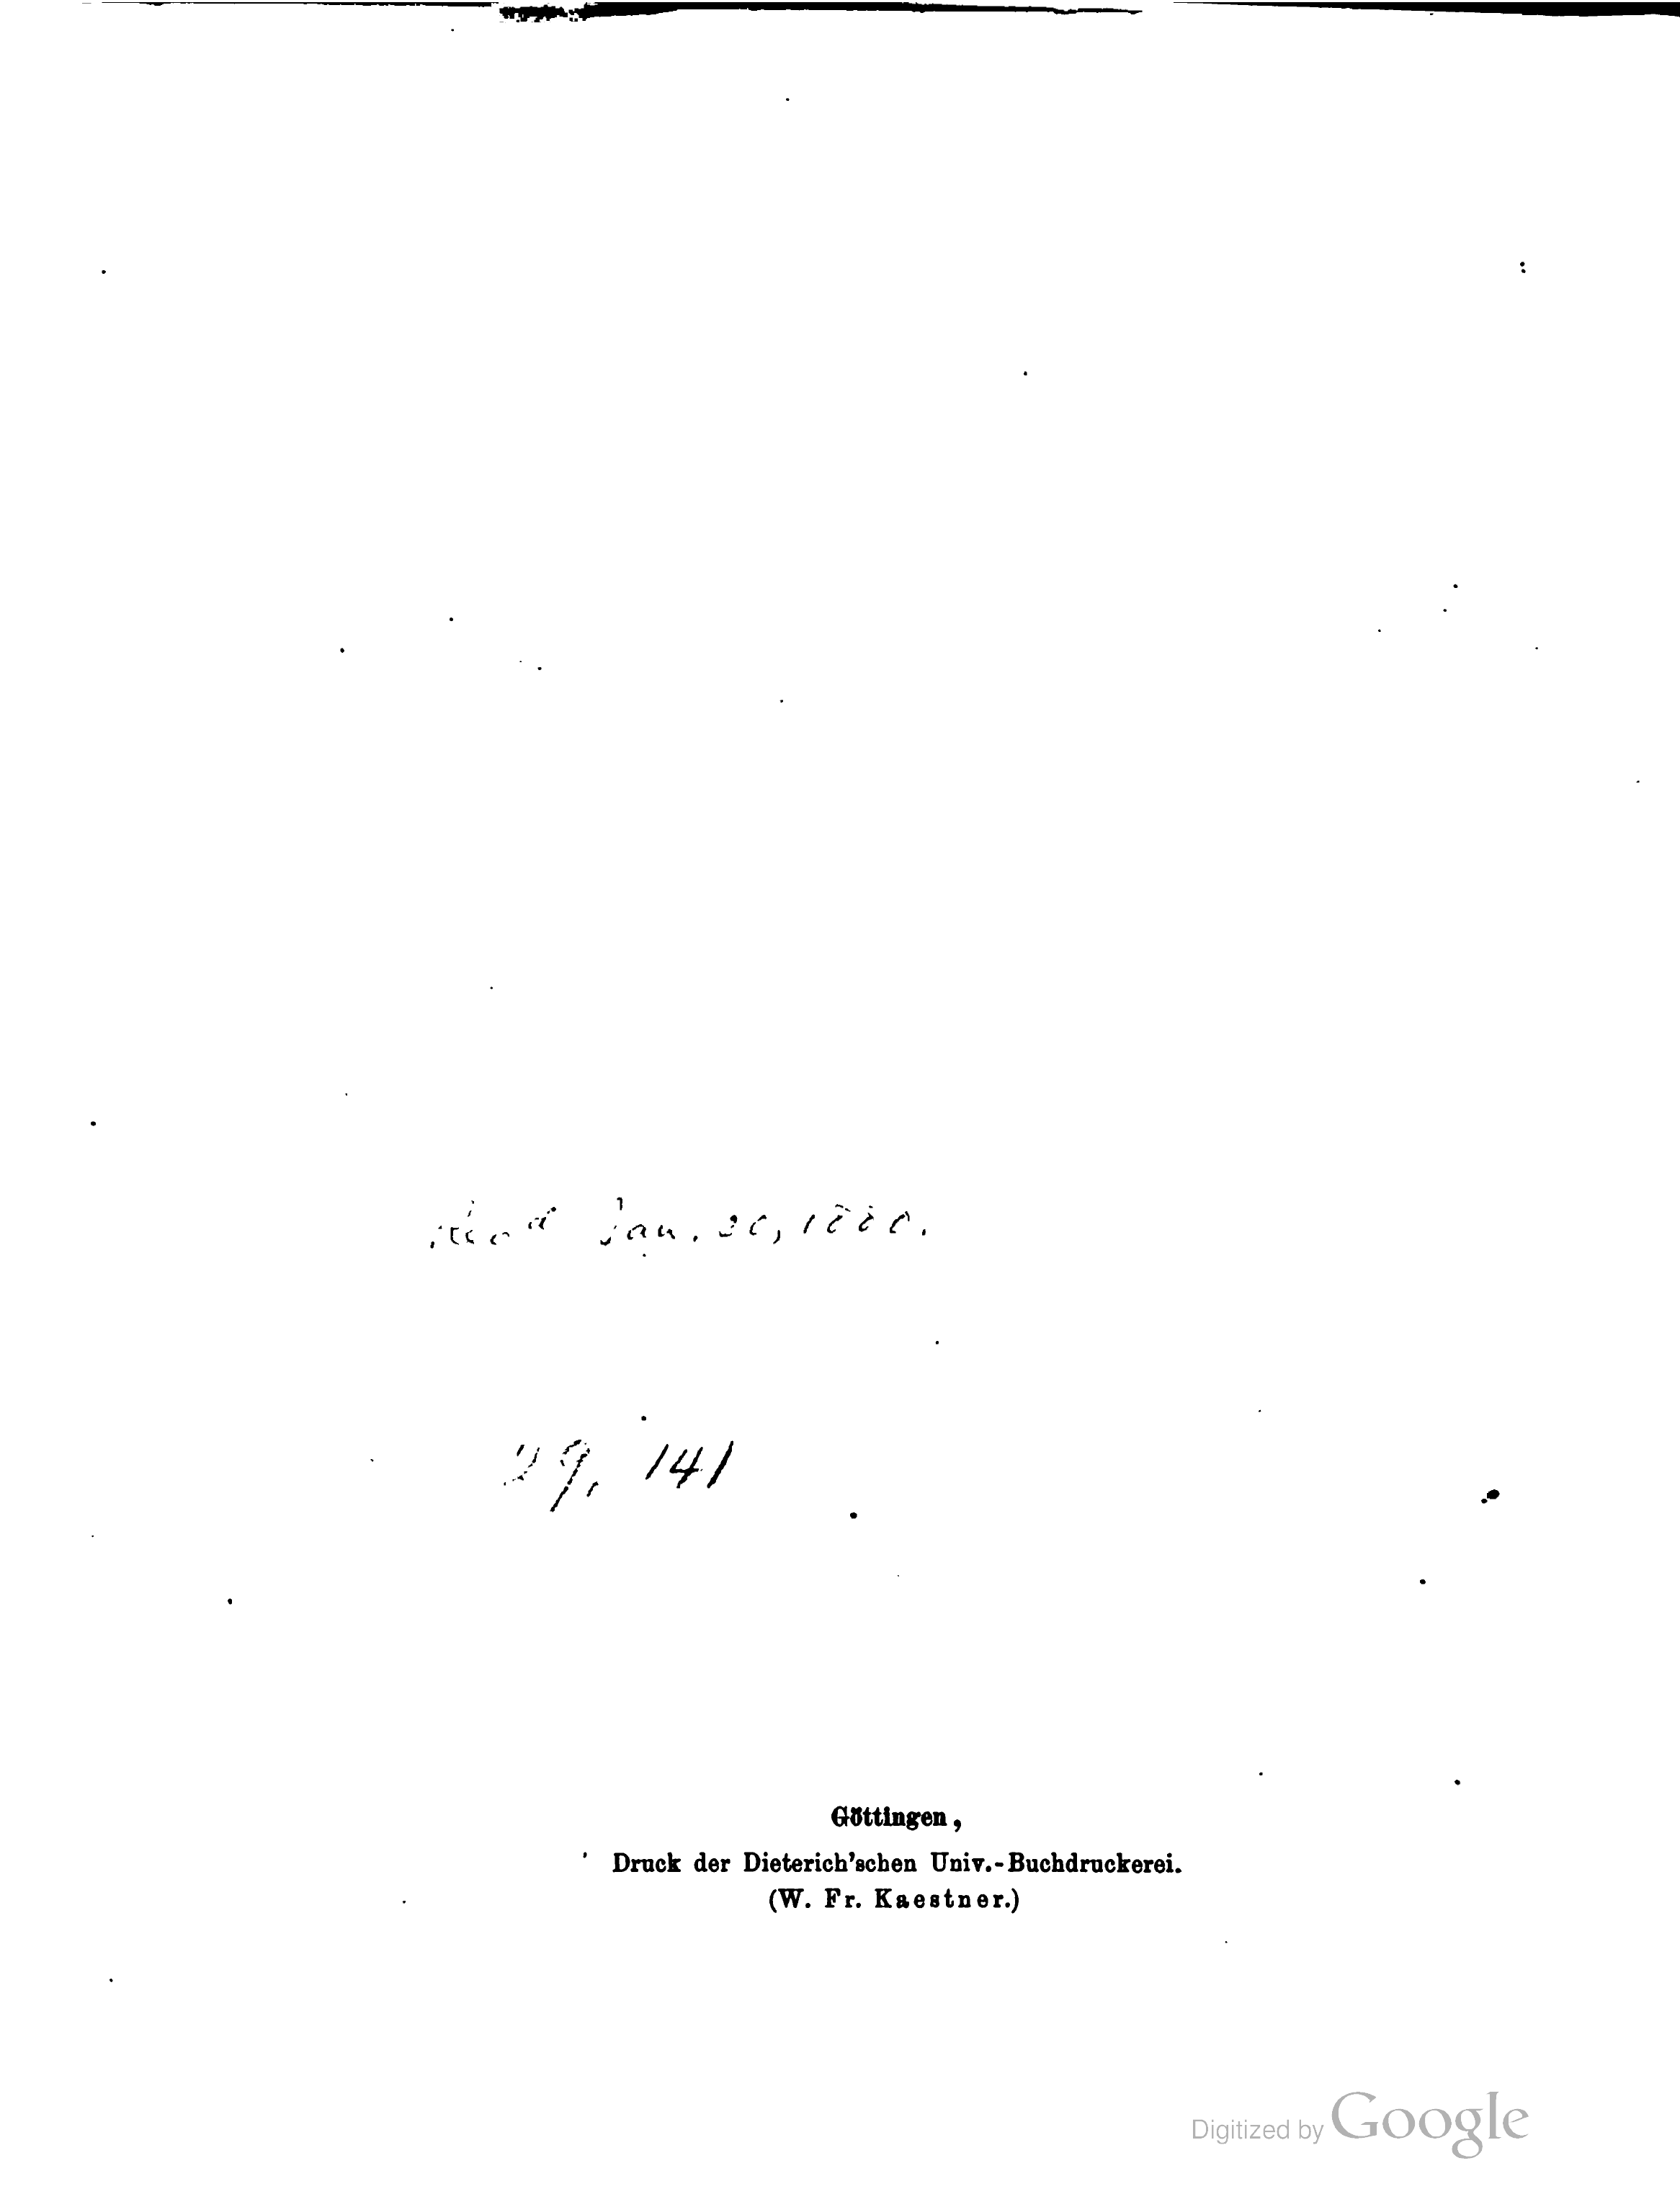 Jan. 30, 1880.
29, 141
Göttingen,
Druck der Dieterich'schen Univ.-Buchdruckerei.
(W. Fr. Kaestner.)
Digitized by Google